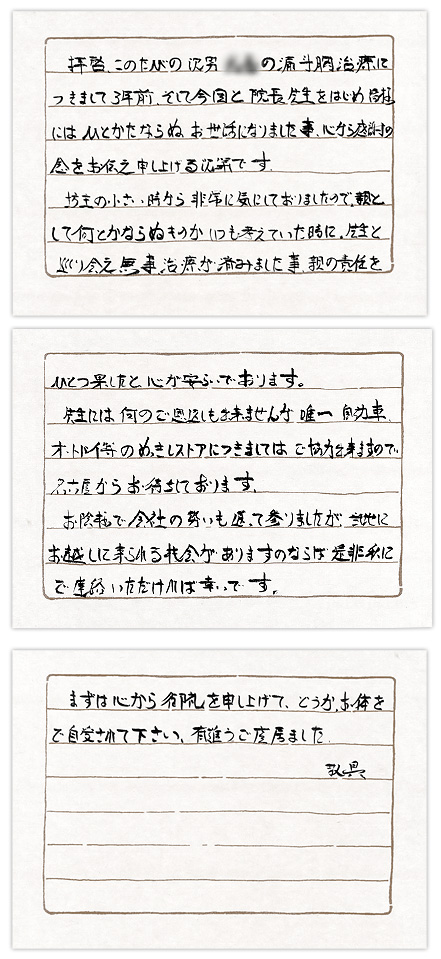 拝啓、このたびの次男 の漏斗胸治療に
つきまして3年前、そして今回と院長先生をはじめ皆様
にはひとかたならぬお世話になりました事、心から感謝の
念をお伝え申し上げる次第です。
坊主の小さい時から非常に気にしておりましたので、親と
して何とかならぬものかいつも考えていた時に、先生と
巡り会え無事治療が済みました事、親の責任を
ひとつ果したと心が安らいでおります。
先生には何のご恩返しも出来ませんが唯一自動車、
オートバイ等のぬきしストアにつきましてはご協力出来ますので
名古屋からお待ちしております。
お陰転で会社の勢いも戻って参りましたが、当地に
お越しに来られる機会がありますのならば是非私に
ご連絡いただければ幸いです。
まずは心から御礼を申し上げて、どうかお体を
ご自愛されて下さい、有難うご座居ました。
敬具